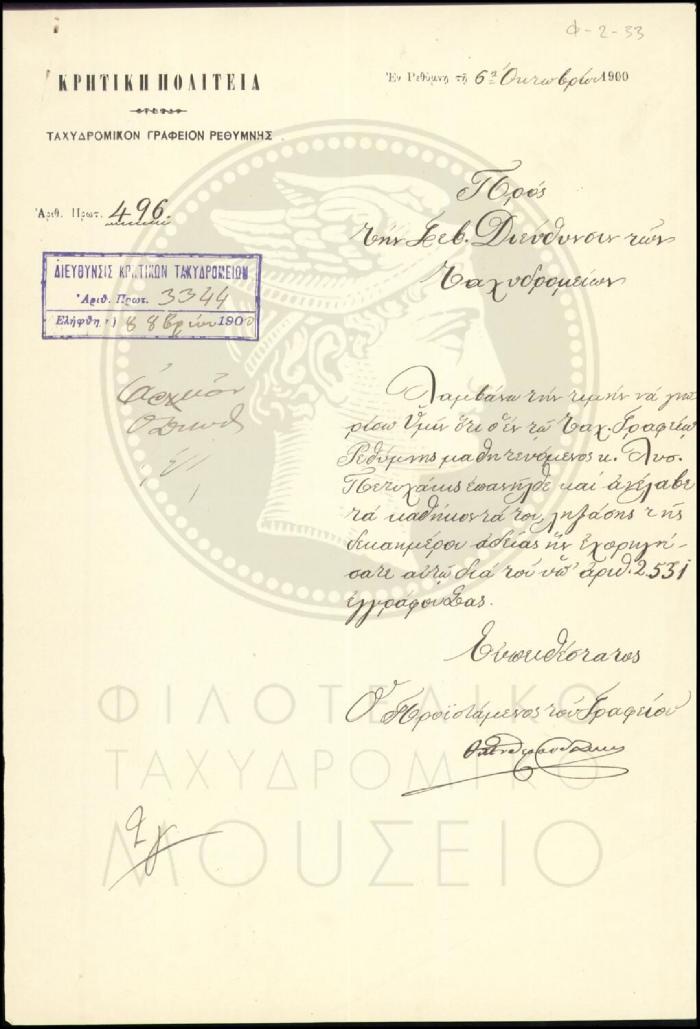 Φ-2-33
ΚΡΗΤΙΚΗ ΠΟΛΙΤΕΙΑ
ΤΑΧΥΔΡΟΜΙΚΟΝ ΓΡΑΦΕΙΟΝ ΡΕΘΥΜΝΗΣ
Ἐν Ρεθύμνῃ τῇ 6ῃ Ὀκτωβρίου 1900
Ἀριθ. Πρωτ. 496.
Πρὸς
τὴν Σεβ. Διεύθυνσιν τῶν
Ταχυδρομείων
ΔΙΕΥΘΥΝΣΙΣ ΚΡΗΤΙΚΩΝ ΤΑΧΥΔΡΟΜΕΙΩΝ
Ἀριθ. Πρωτ. 3344
Ἐλήφθη τῇ 8 8βρίου 1900
Ἀρχεῖον
Λαμβάνω τὴν τιμὴν νὰ γνω
ρίσω Ὑμῖν ὅτι ὁ ἐν τῷ Ταχ. Γραφείῳ
Ρεθύμνης μαθητευόμενος κ. Λυσ.
Πετυχάκις ἐπανῆλθε καὶ ἀνέλαβε
τὰ καθήκοντά του ληξάσης τῆς
δεκαημέρου ἀδείας ἣν ἐχορηγή-
σατε αὐτῷ διὰ τοῦ ὑπ' ἀριθ. 2531
ἐγγράφου Σας.
Εὐπειθέστατος
Ὁ Προϊστάμενος τοῦ Γραφείου
ΦΙΛΟΤΕΛΙΚΟ
ΤΑΧΥΔΡΟΜΙΚΟ
ΜΟΥΣΕΙΟ